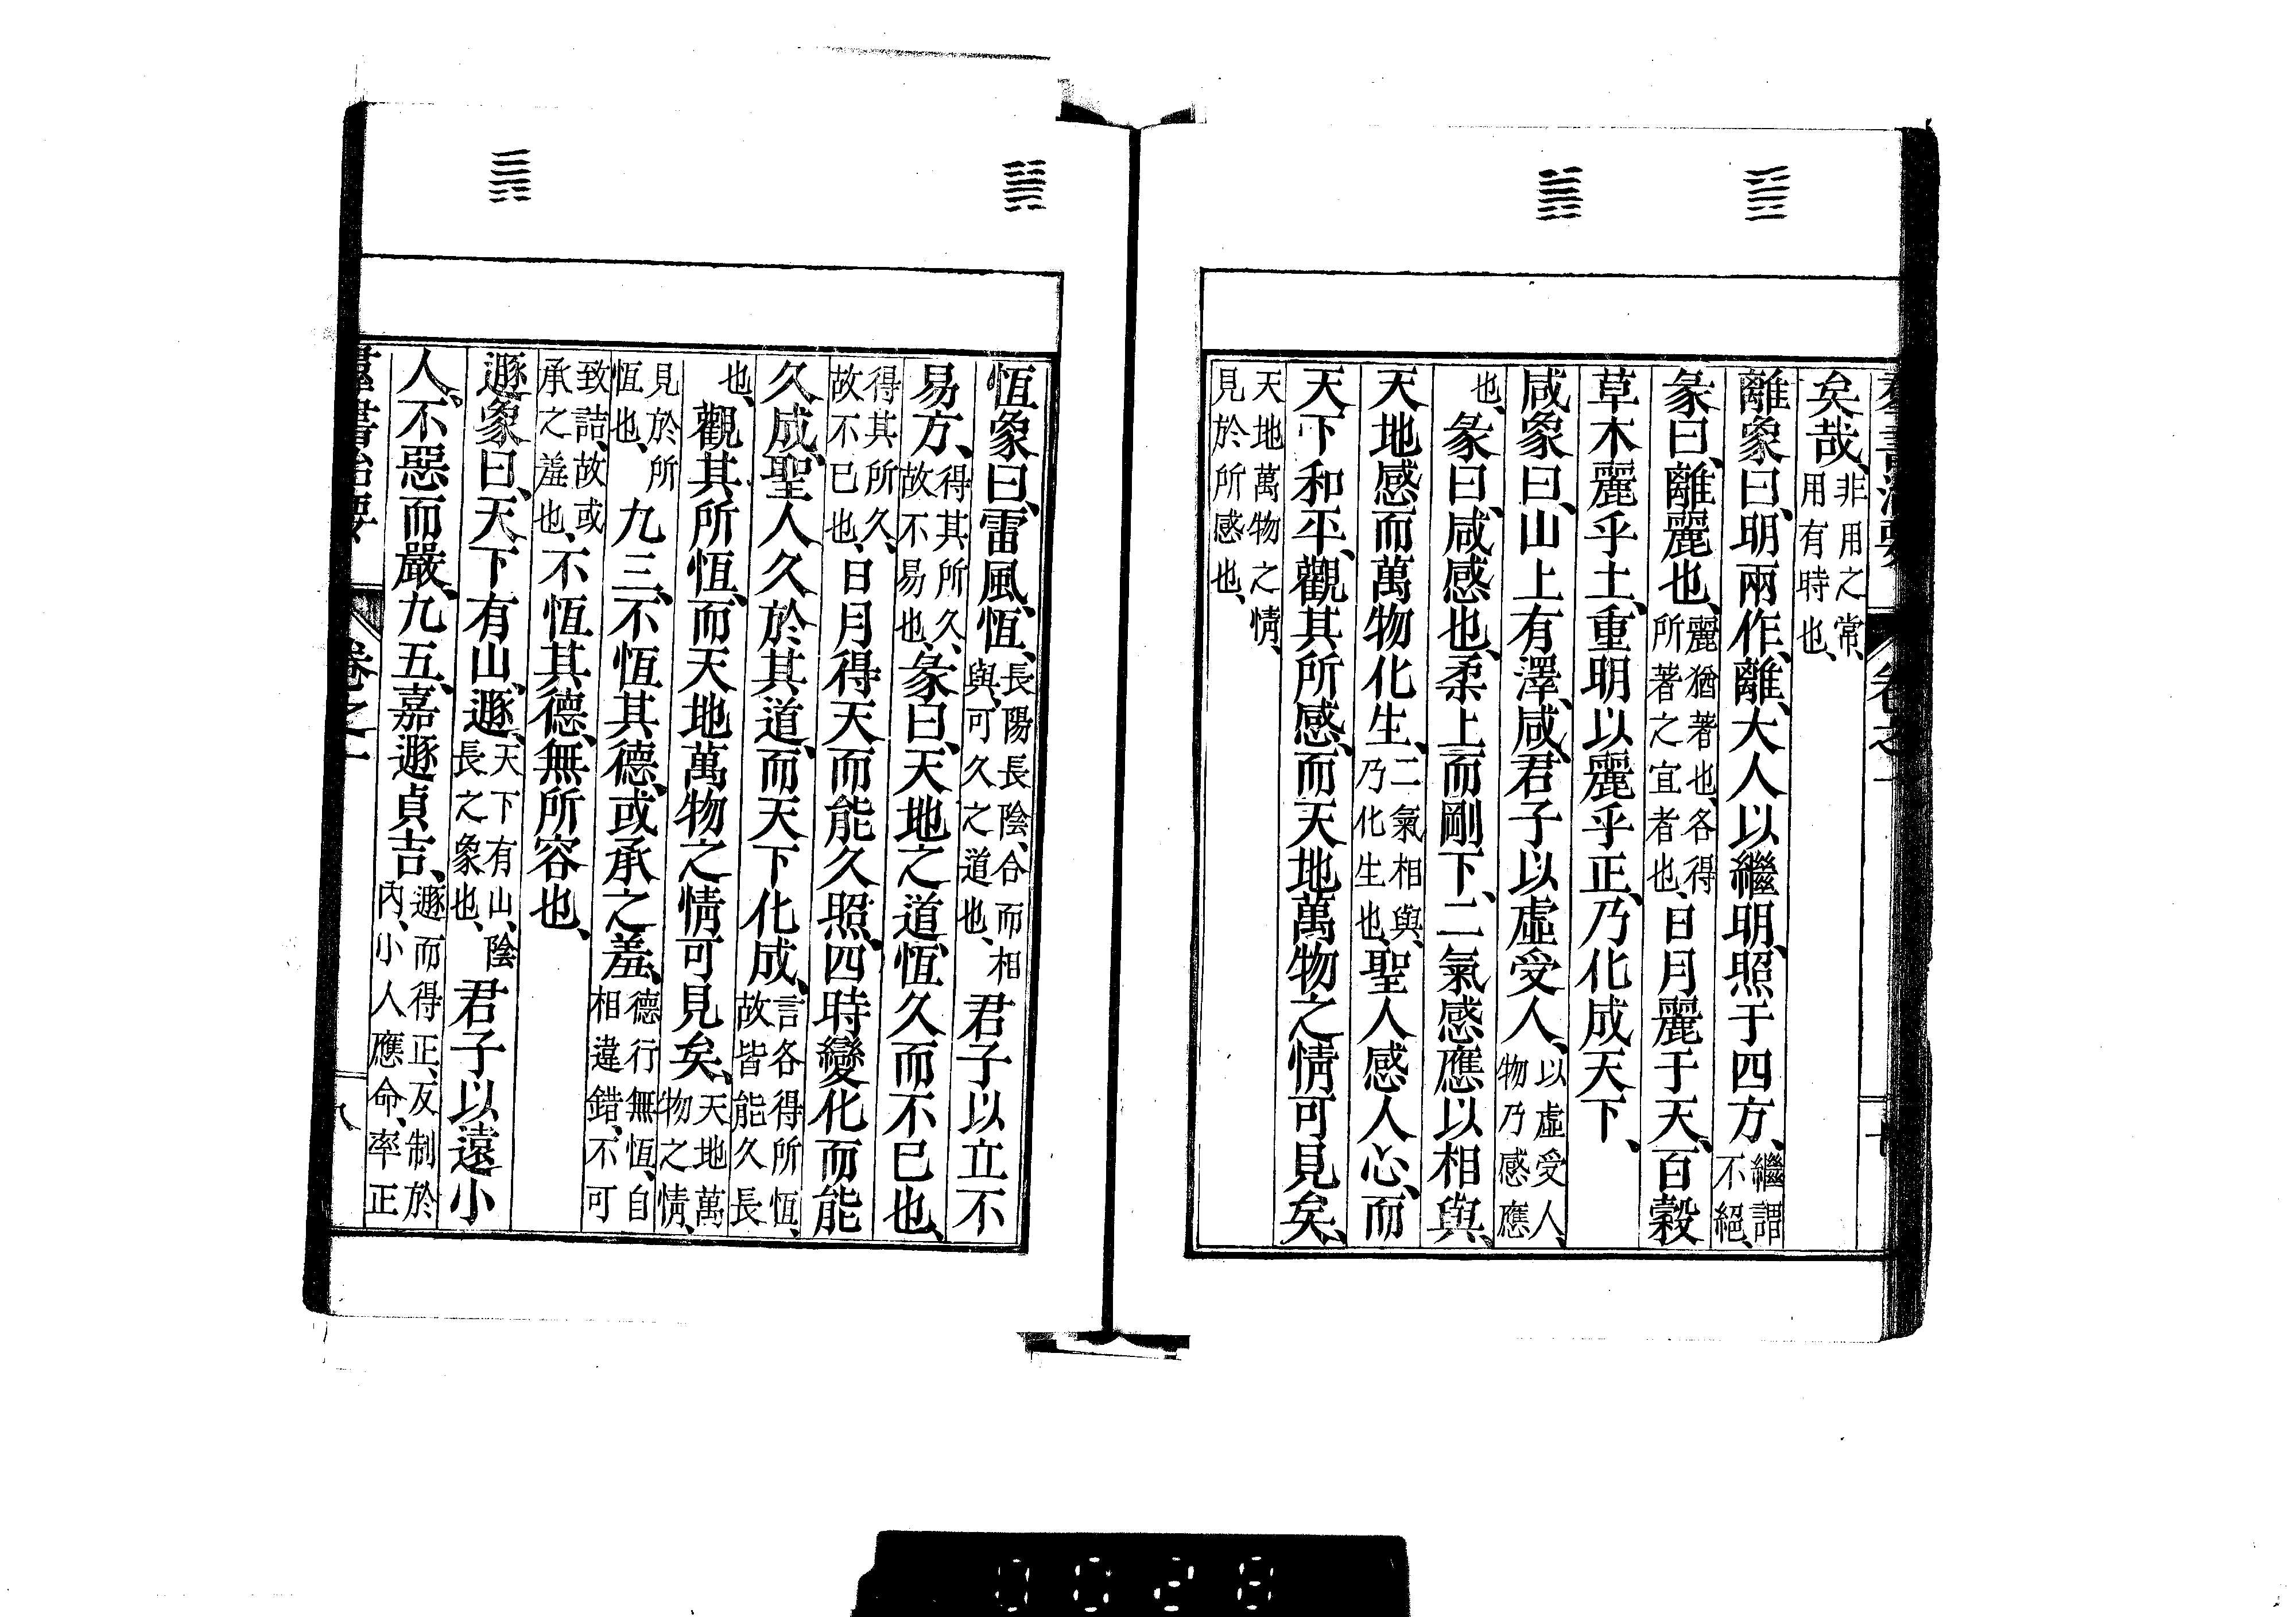 羣書治要 卷之一 七
矣哉、非用之常、用有時也、
離象曰、明兩作、離、大人以繼明、照于四方、繼謂不絕、
彖曰、離麗也、麗猶著也、各得所著之宜者也、日月麗于天、百穀
草木麗乎土、重明以麗乎正、乃化成天下、
咸象曰、山上有澤、咸、君子以虛受人、以虛受人、物乃感應
也、彖曰、咸感也、柔上而剛下、二氣感應以相與、
天地感而萬物化生、二氣相與、乃化生也、聖人感人心、而
天下和平、觀其所感、而天地萬物之情可見矣、
天地萬物之情、見於所感也、
恆象曰、雷風、恆、長陽長陰、合而相與、可久之道也、君子以立不
易方、得其所久、故不易也、彖曰、天地之道、恆久而不已也、
得其所久、故不已也、日月得天而能久照、四時變化而能
久成、聖人久於其道、而天下化成、言各得所恆、故皆能久長
也、觀其所恆、而天地萬物之情可見矣、天地萬物之情、
見於所恆也、九三、不恆其德、或承之羞、德行無恆、自相違錯、不可
致詰、故或承之羞也、不恆其德、無所容也、
遯象曰、天下有山、遯、天下有山、陰長之象也、君子以遠小
人、不惡而嚴、九五、嘉遯貞吉、遯而得正、反制於內、小人應命、率正
羣書治要 卷之一 八
0028